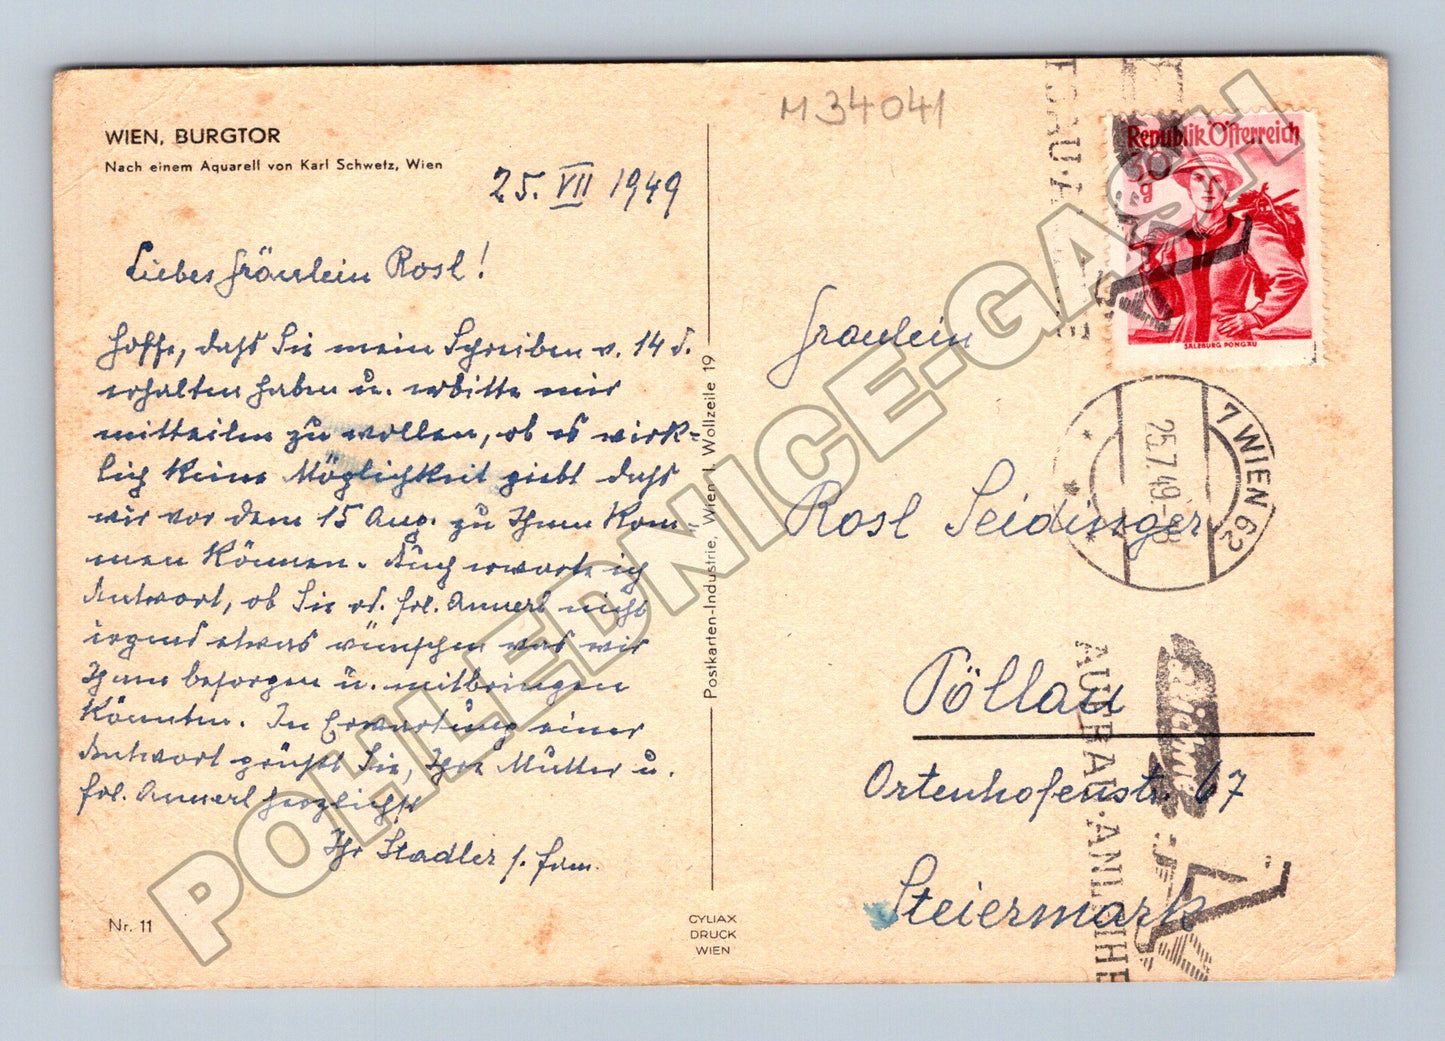 WIEN, BURGTOR
Nach einem Aquarell von Karl Schwetz, Wien
25. VII 1949
Liebes Fräulein Rosl!
Hoffe, dass Sie mein Schreiben v. 14 d.
erhalten haben u. erbitte mir
mitteilen zu wollen, ob es wirk-
lich keine Möglichkeit giebt dass
wir vor dem 15 Aug. zu Ihnen kom-
men können. Auch erwarte ich
Antwort, ob Sie od. Frl. Annerl nicht
irgend etwas wünschen was wir
Ihnen besorgen u. mitbringen
könnten. In Erwartung einer
Antwort grüßt Sie, Ihre Mutter u.
Frl. Annerl herzlichst
Ihr Stadler s. Fam.
Nr. 11
CYLIAX
DRUCK
WIEN
Postkarten-Industrie, Wien I, Wollzeile 19
M 34041
Republik Österreich
30
g
SALZBURG PONGAU
7 WIEN 62
25.7.49
AUFBAU-ANLEIHE
Fräulein
Rosl Seidinger
Pöllau
Ortenhofenstr. 67
Steiermark
POHLEDNICE-GASH